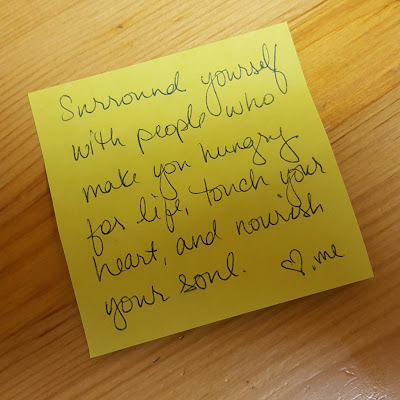 Surround yourself
with people who
make you hungry
for life, touch your
heart, and nourish
your soul. ♡, me